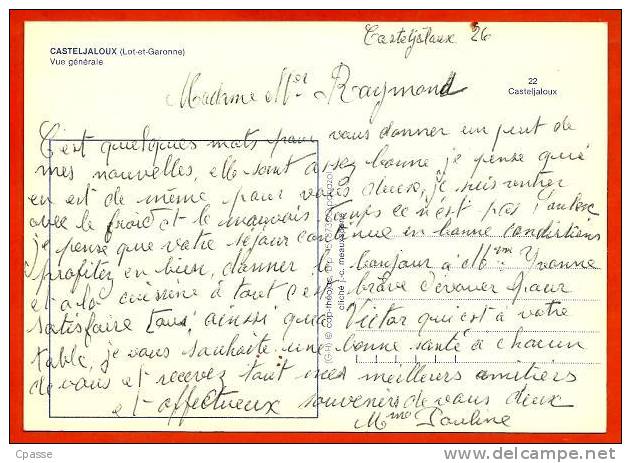 Casteljaloux 26
CASTELJALOUX (Lot-et-Garonne)
Vue générale
22
Casteljaloux
Madame Mr Raymond
C'est quelques mots pour vous donner un peut de
mes nouvelles, elle sont assez bonne je pense que
en est de même pour vous deux, je suis rentrer
avec le froid et le mauvais temps ce n'est pas
je pense que votre séjour continue en bonne conditions
profitez en bien, donner le bonjour à Mme Yvonne
et a la cuisinière à tout ces brave dévouer pour
satisfaire tous, ainsi qua Victor qui est à votre
table, je vous souhaite une bonne santé a chacun
de vous et recevez tout mes meilleurs amitiers
et affectueux souvenirs de vous deux
Mme Pauline
cliché j.-c. meauxsoone
Cpasse
delcampe.net